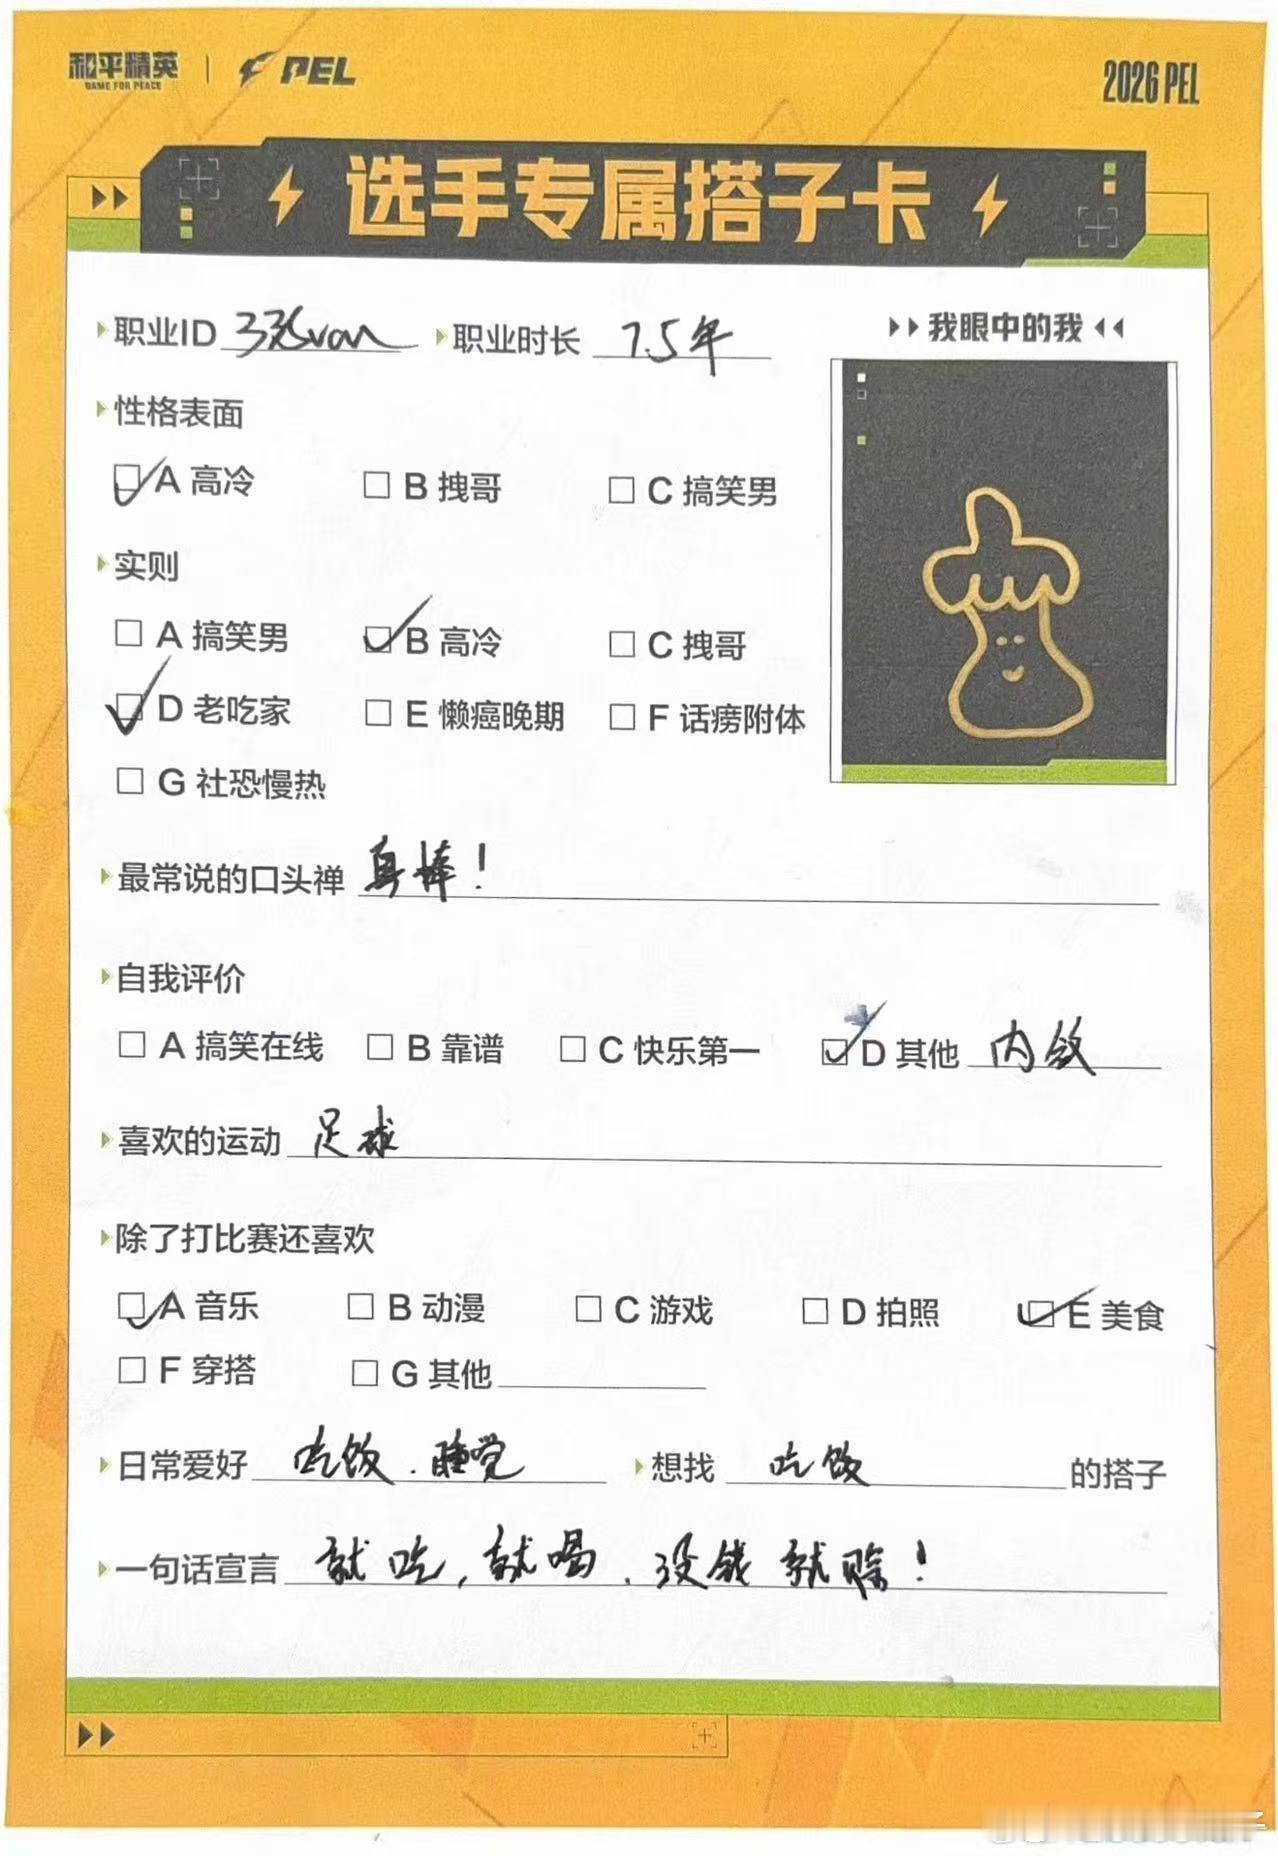 和平精英 GAME FOR PEACE | PEL 2026 PEL
选手专属搭子卡
职业ID 33Svan 职业时长 7.5年
我眼中的我
性格表面
A 高冷 B 拽哥 C 搞笑男
实则
A 搞笑男 B 高冷 C 拽哥
D 老吃家 E 懒癌晚期 F 话痨附体
G 社恐慢热
最常说的口头禅 真棒！
自我评价
A 搞笑在线 B 靠谱 C 快乐第一 D 其他 内敛
喜欢的运动 足球
除了打比赛还喜欢
A 音乐 B 动漫 C 游戏 D 拍照 E 美食
F 穿搭 G 其他
日常爱好 吃饭.睡觉 想找 吃饭 的搭子
一句话宣言 就吃,就喝.没钱就赊！